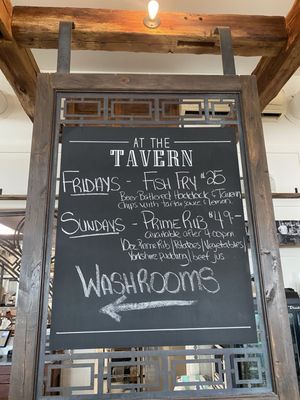 AT THE
TAVERN
FRIDAYS - FISH FRY $25
Beer Battered Haddock & Tavern
Chips with tartar sauce & lemon
SUNDAYS - PRIME RIB $49-
available after 4:00pm
10oz Prime Rib / Potatoes / Vegetables
Yorkshire pudding / beef jus
WASHROOMS